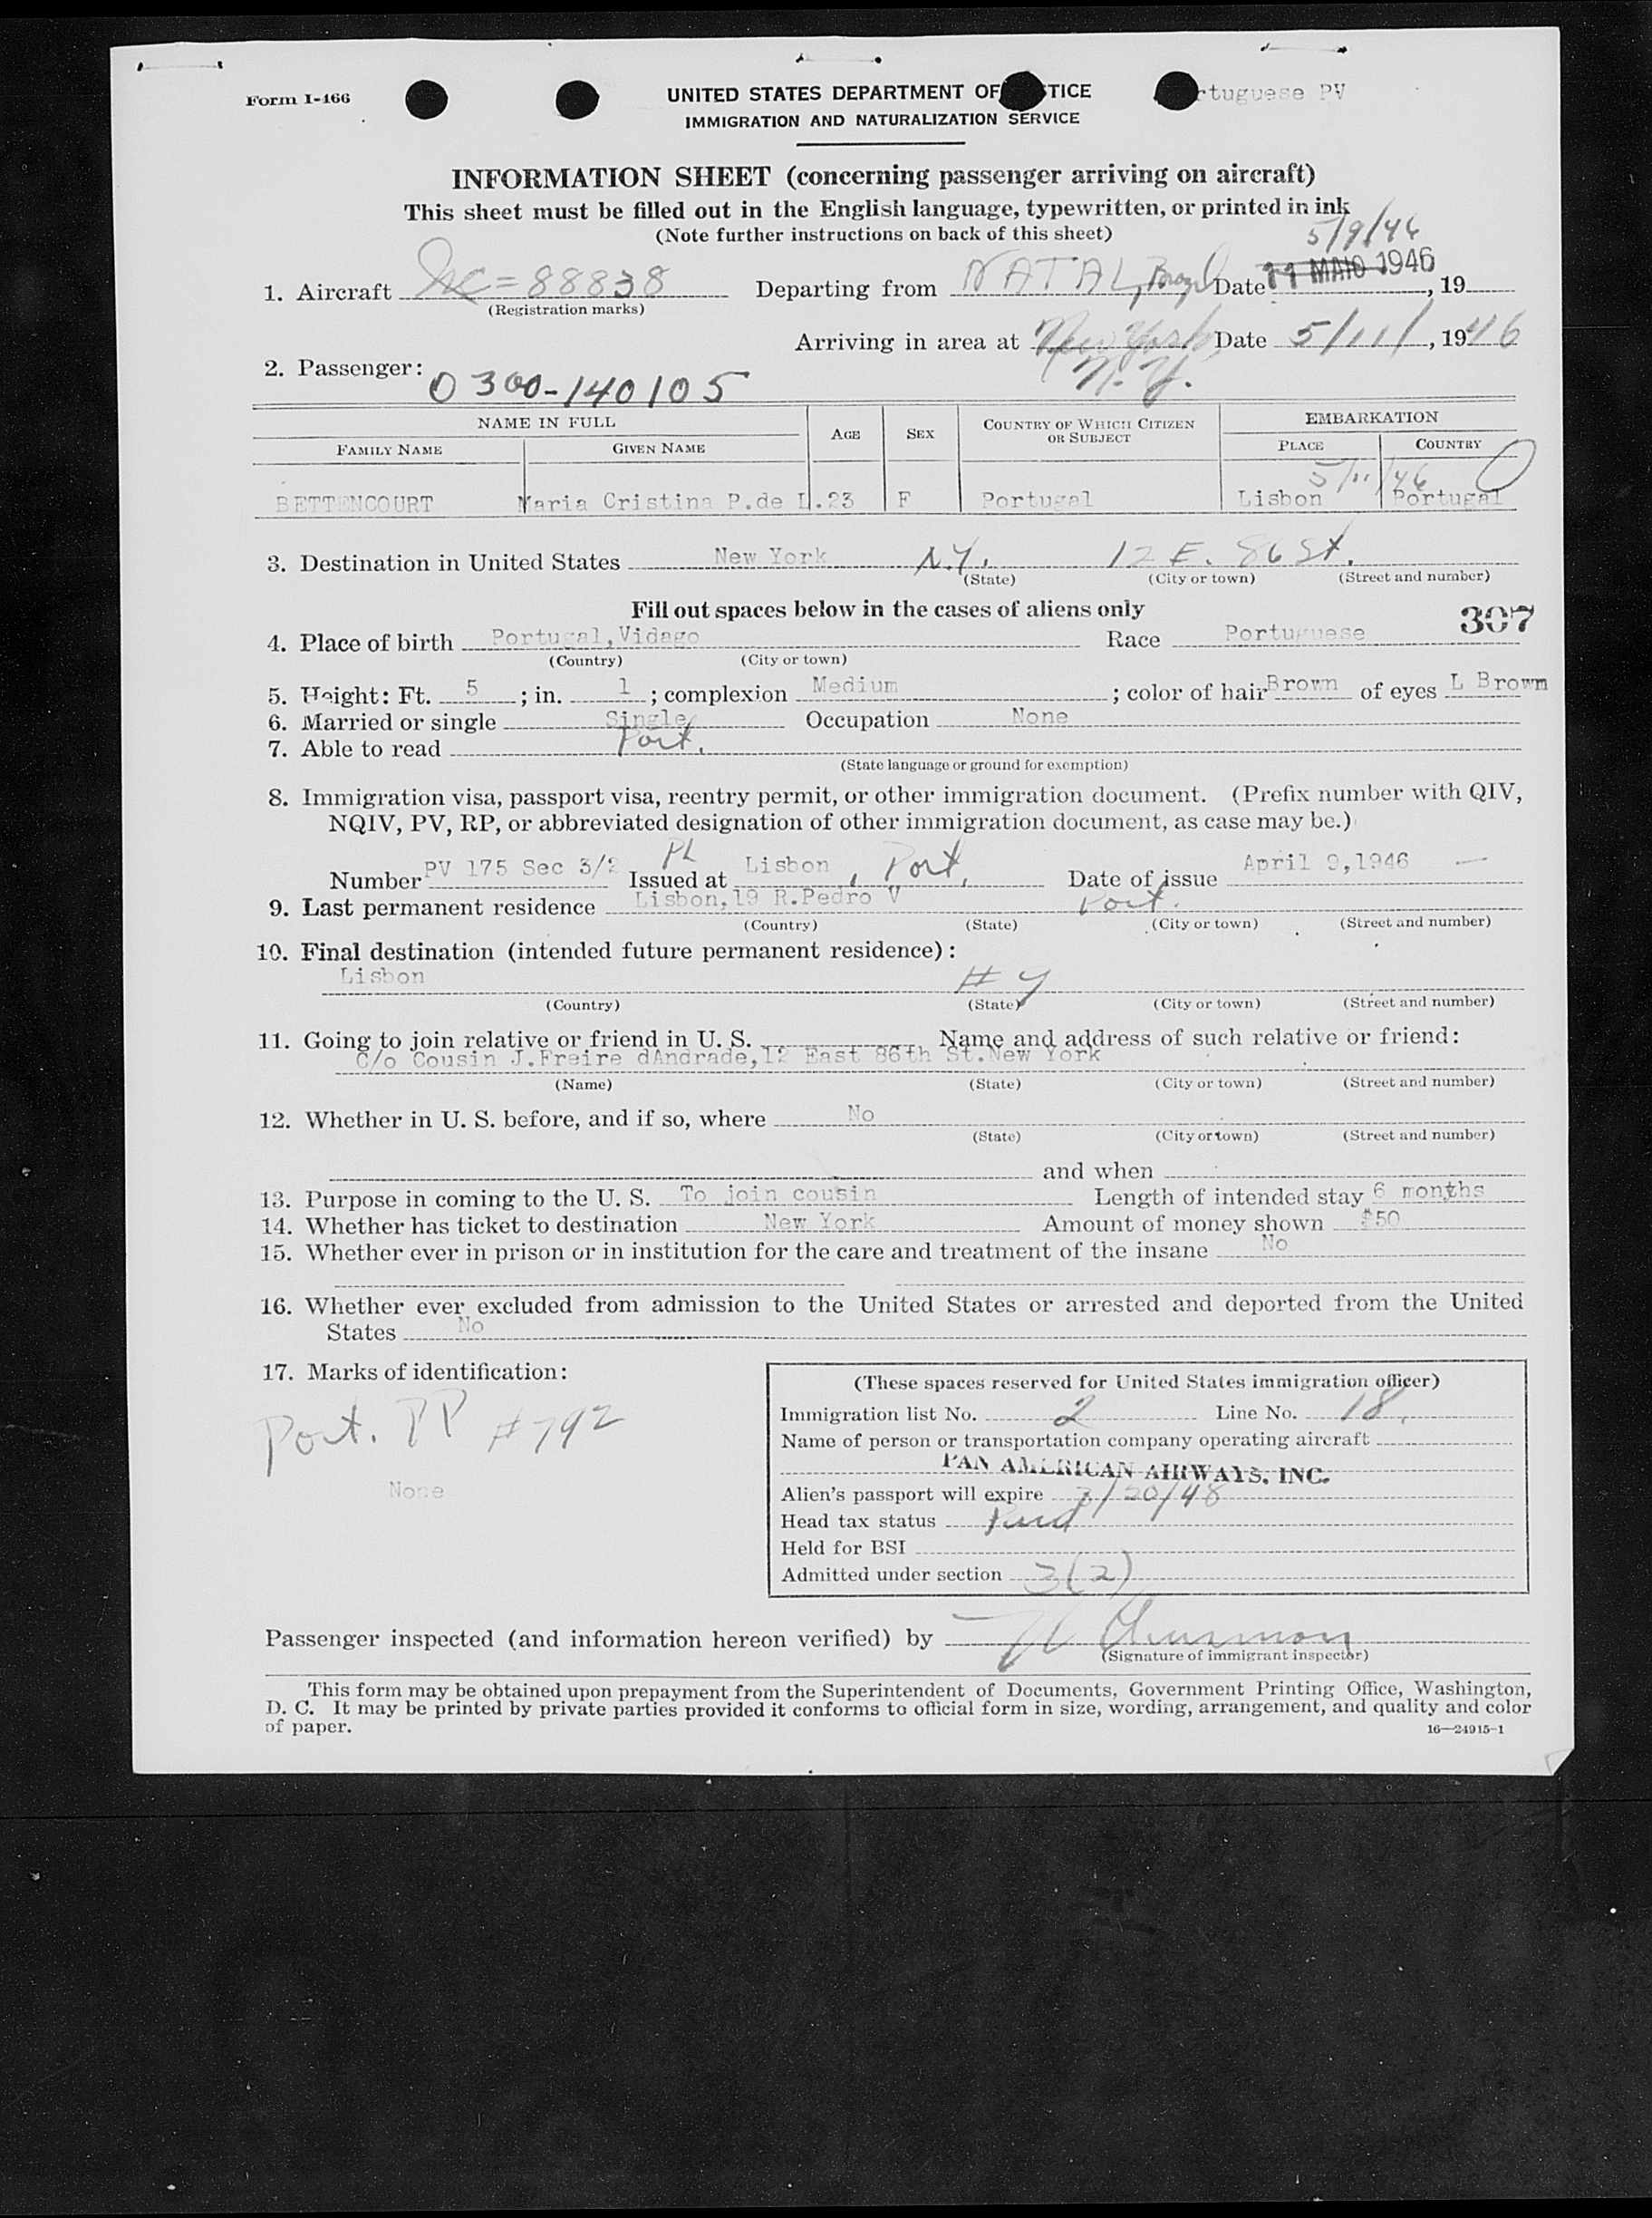 Form I-466
UNITED STATES DEPARTMENT OF TICE
rtuguese PV
IMMIGRATION AND NATURALIZATION SERVICE
INFORMATION SHEET (concerning passenger arriving on aircraft)
This sheet must be filled out in the English language, typewritten, or printed in ink
(Note further instructions on back of this sheet)
5/9/46
1. Aircraft NC=88838 Departing from NATAL, Brazil Date 11 MAIO 1946, 19
(Registration marks)
Arriving in area at New York, N.Y. Date 5/11/, 1946
2. Passenger: 0300-140105
NAME IN FULL AGE SEX COUNTRY OF WHICH CITIZEN OR SUBJECT EMBARKATION
FAMILY NAME GIVEN NAME PLACE COUNTRY
5/11/46 O
BETTENCOURT Maria Cristina P.de L.23 F Portugal Lisbon Portugal
3. Destination in United States New York N.Y. 12 E. 86 St.
(State) (City or town) (Street and number)
Fill out spaces below in the cases of aliens only
307
4. Place of birth Portugal,Vidago Race Portuguese
(Country) (City or town)
5. Height: Ft. 5; in. 1; complexion Medium; color of hair Brown of eyes L Brown
6. Married or single Single Occupation None
7. Able to read Port.
(State language or ground for exemption)
8. Immigration visa, passport visa, reentry permit, or other immigration document. (Prefix number with QIV,
NQIV, PV, RP, or abbreviated designation of other immigration document, as case may be.)
Number PV 175 Sec 3/2 PL Issued at Lisbon, Port. Date of issue April 9,1946
9. Last permanent residence Lisbon,19 R.Pedro V Port.
(Country) (State) (City or town) (Street and number)
10. Final destination (intended future permanent residence):
Lisbon # 4
(Country) (State) (City or town) (Street and number)
11. Going to join relative or friend in U. S. Name and address of such relative or friend:
C/o Cousin J.Freire dAndrade,12 East 86th St.New York
(Name) (State) (City or town) (Street and number)
12. Whether in U. S. before, and if so, where No
(State) (City or town) (Street and number)
and when
13. Purpose in coming to the U. S. To join cousin Length of intended stay 6 months
14. Whether has ticket to destination New York Amount of money shown $50
15. Whether ever in prison or in institution for the care and treatment of the insane No
16. Whether ever excluded from admission to the United States or arrested and deported from the United
States No
17. Marks of identification:
Port. PP #792
None
(These spaces reserved for United States immigration officer)
Immigration list No. 2 Line No. 18.
Name of person or transportation company operating aircraft
PAN AMERICAN AIRWAYS, INC.
Alien's passport will expire 3/20/48
Head tax status Paid
Held for BSI
Admitted under section 3(2)
Passenger inspected (and information hereon verified) by
(Signature of immigrant inspector)
This form may be obtained upon prepayment from the Superintendent of Documents, Government Printing Office, Washington,
D. C. It may be printed by private parties provided it conforms to official form in size, wording, arrangement, and quality and color
of paper.
16—24915-1